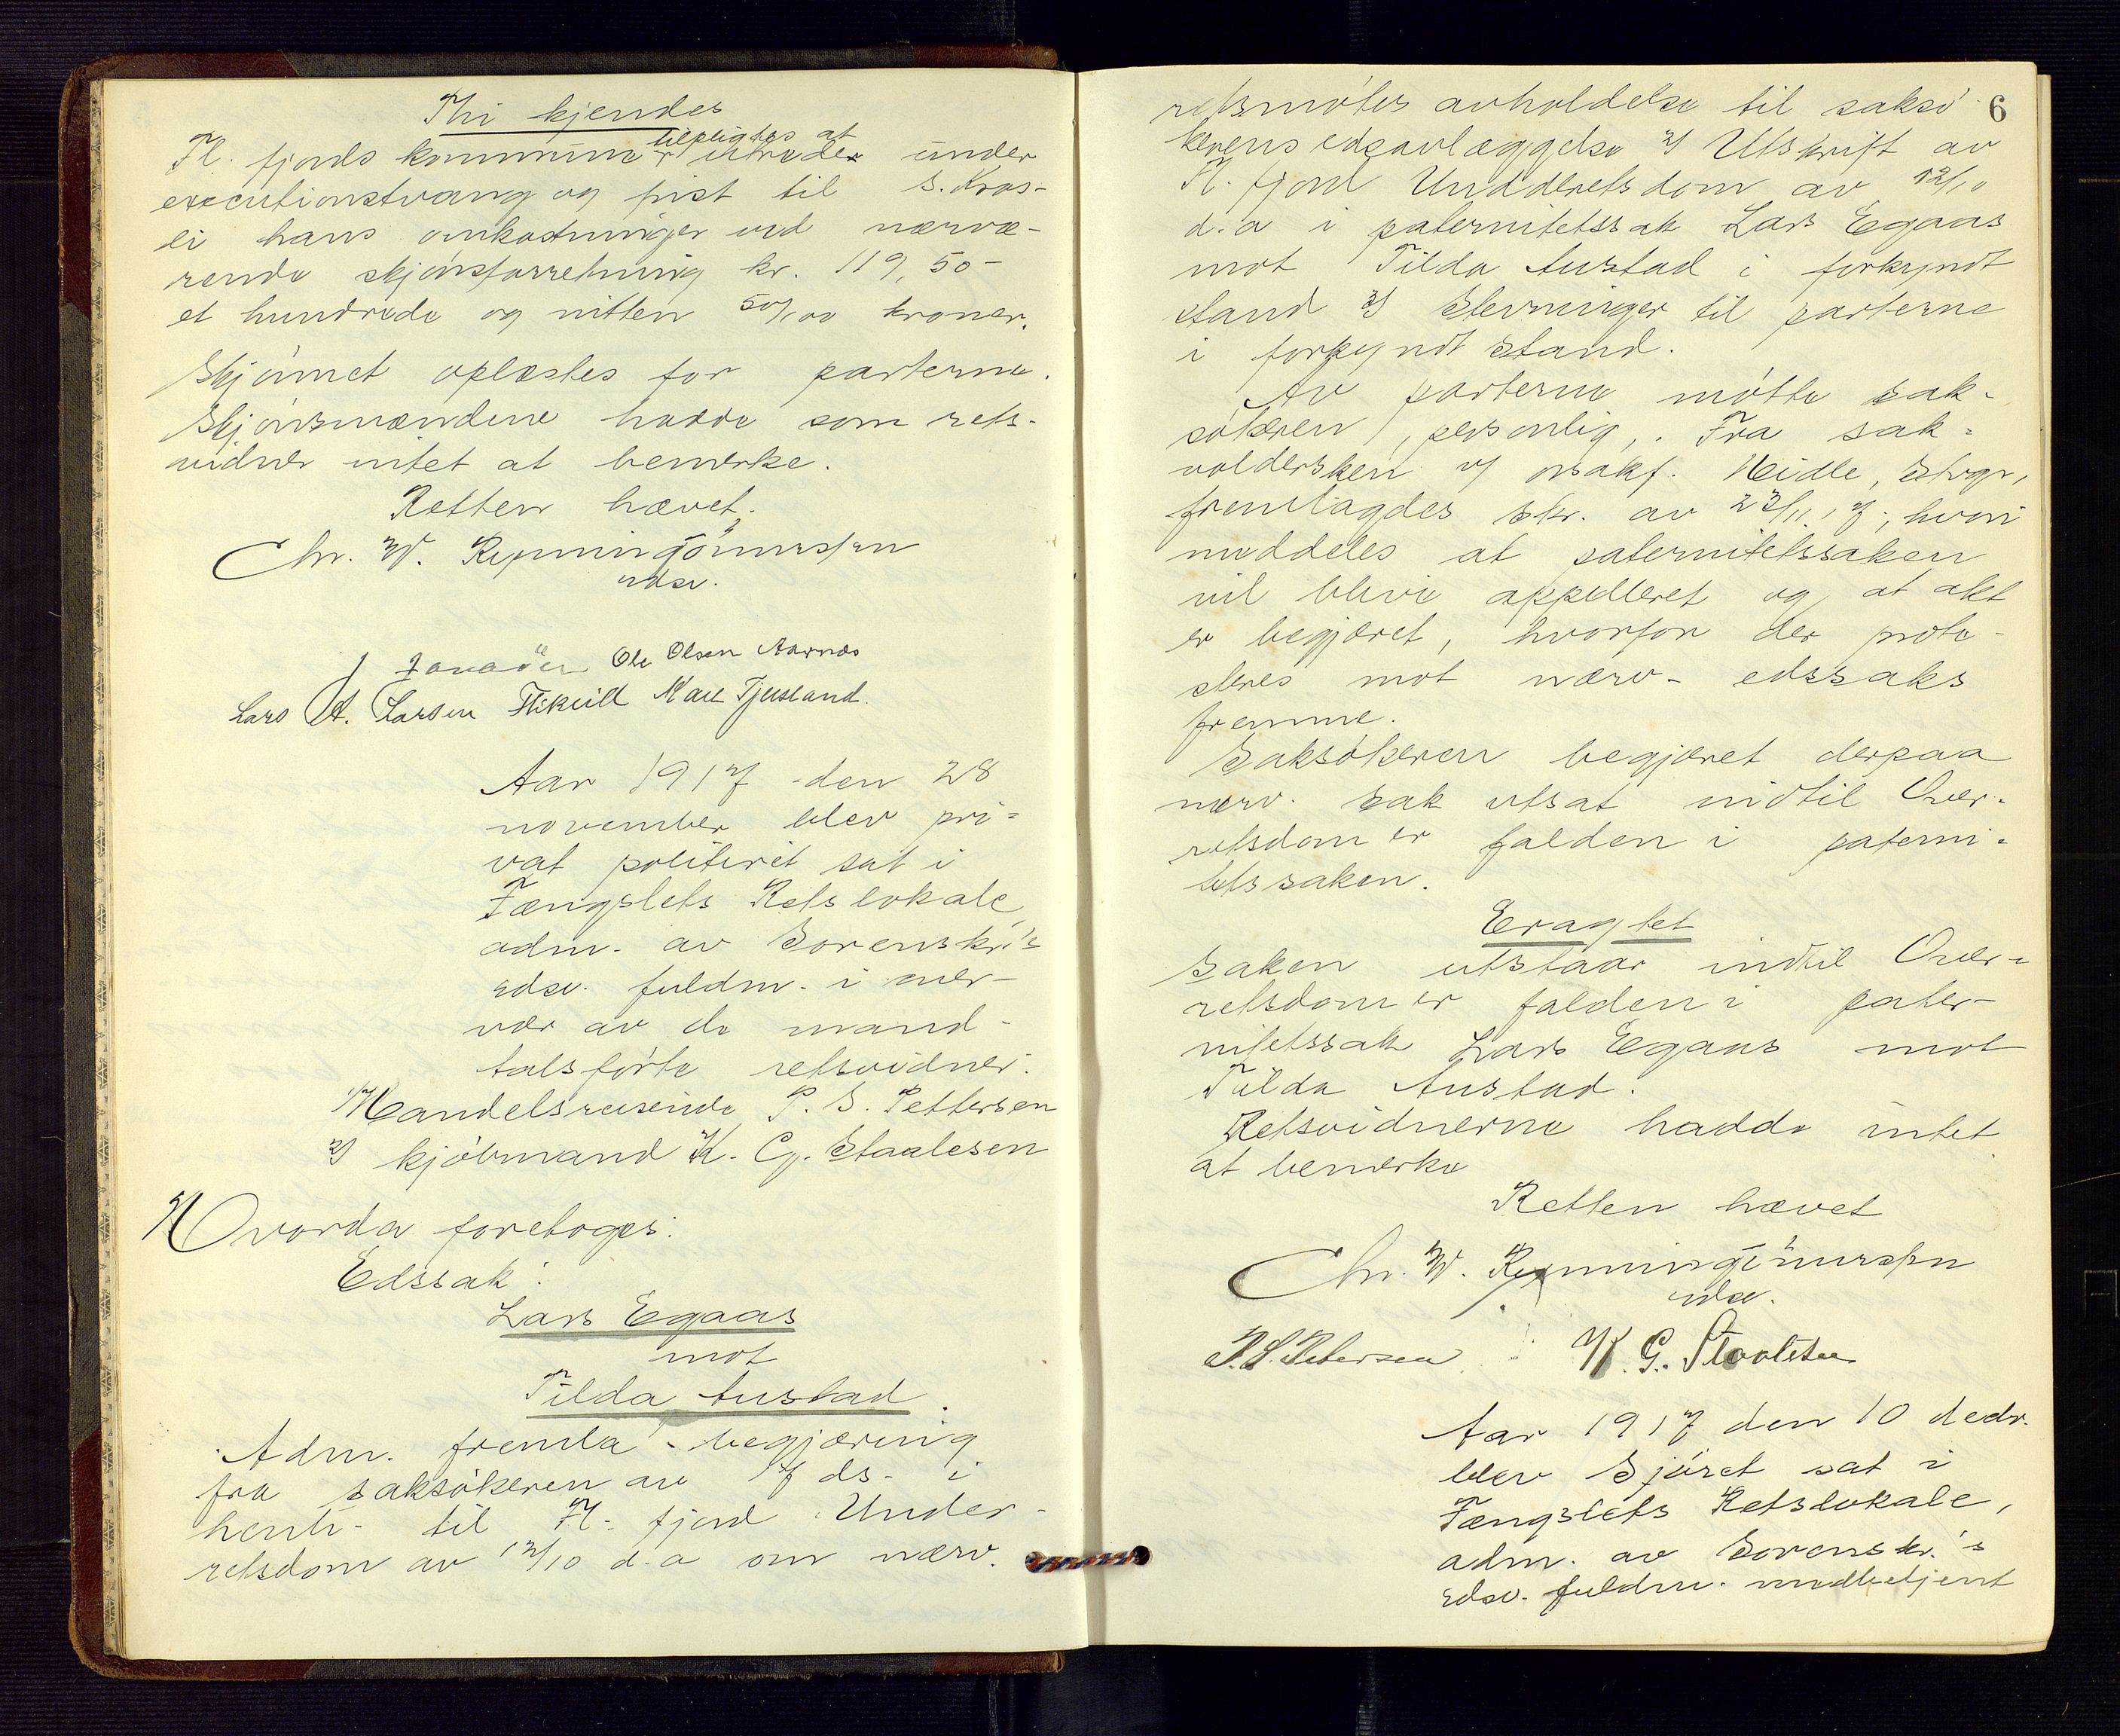 Thi kjendes
tilpligtes at
Fl. fjords kommune utrede under
executionstvang og frist til S. Kros-
li hans omkostninger ved nærvæ-
rende skjønsforretning kr. 119,50 -
et hundrede og nitten 50/100 kroner.
Skjønnet oplæstes for parterne.
Skjønsmændene hadde som rets-
vidner intet at bemerke.
Retten hævet.
Chr. W. Rynning
edsv.
Ole Olsen Aarnæs
Lars A. Larsen Flikeid Karl Tjersland.
Aar 1917 den 28
november blev pri=
vat politiret sat i
Fængslets Retslokale,
adm. av Sorenskr.'s
edsv. fuldm. i over-
vær av de mand-
talsførte retsvidner:
1) Handelsreisende P. S. Pettersen
2) kjøbmand K. G. Staalesen
Hvorda foretoges:
Edssak:
Lars Egaas
mot
Tilda Austad.
Adm. fremla - begjæring
fra saksøkeren av 17 ds. i
henh- til Fl. fjord Under-
retsdom av 12/10 d.a om nærv.
6
retsmøtes avholdelse til saksø
kerens edsavlæggelse 2) Utskrift av
Fl. fjord Undderetsdom av 12/10
d.a i paternitetssak Lars Egaas
mot Tilda Austad i forkyndt
stand 3) Stevninger til parterne
i forkyndt stand.
Av parterne møtte sak-
søkeren, personlig,. Fra sak=
voldersken v/ orsakf. Heidle, Stvgr,
fremlagdes skr. av 23/11 17, hvori
meddeles at paternitetssaken
vil blive appelleret og at akt
er begjæret, hvorfor der prote-
steres mot nærv- edssaks
fremme.
Saksøkeren begjæret derpaa
nærv. sak utsat indtil Over-
retsdom er falden i paterni=
tetssaken.
Eragtet
Saken utstaar indtil Over-
retsdom er falden i pater-
nitetssak Lars Egaas mot
Tilda Austad.
Retsvidnerne hadde intet
at bemerke
Retten hævet
Chr. W. Rynning
edsv.
P. S. Petersen K. G. Staalesen
Aar 1917 den 10 decbr.
blev Sjøret sat i
Fængslets Retslokale,
adm. av Sorenskr.'s
edsv. fuldm. medbetjent